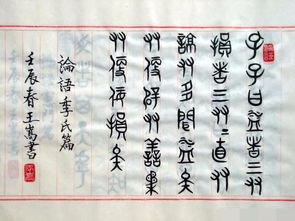 孔子曰益者三友
損者三友〻直友
諒友多聞益矣
友便辟友善柔
友便佞損矣
論語季氏篇
壬辰春王嵩書